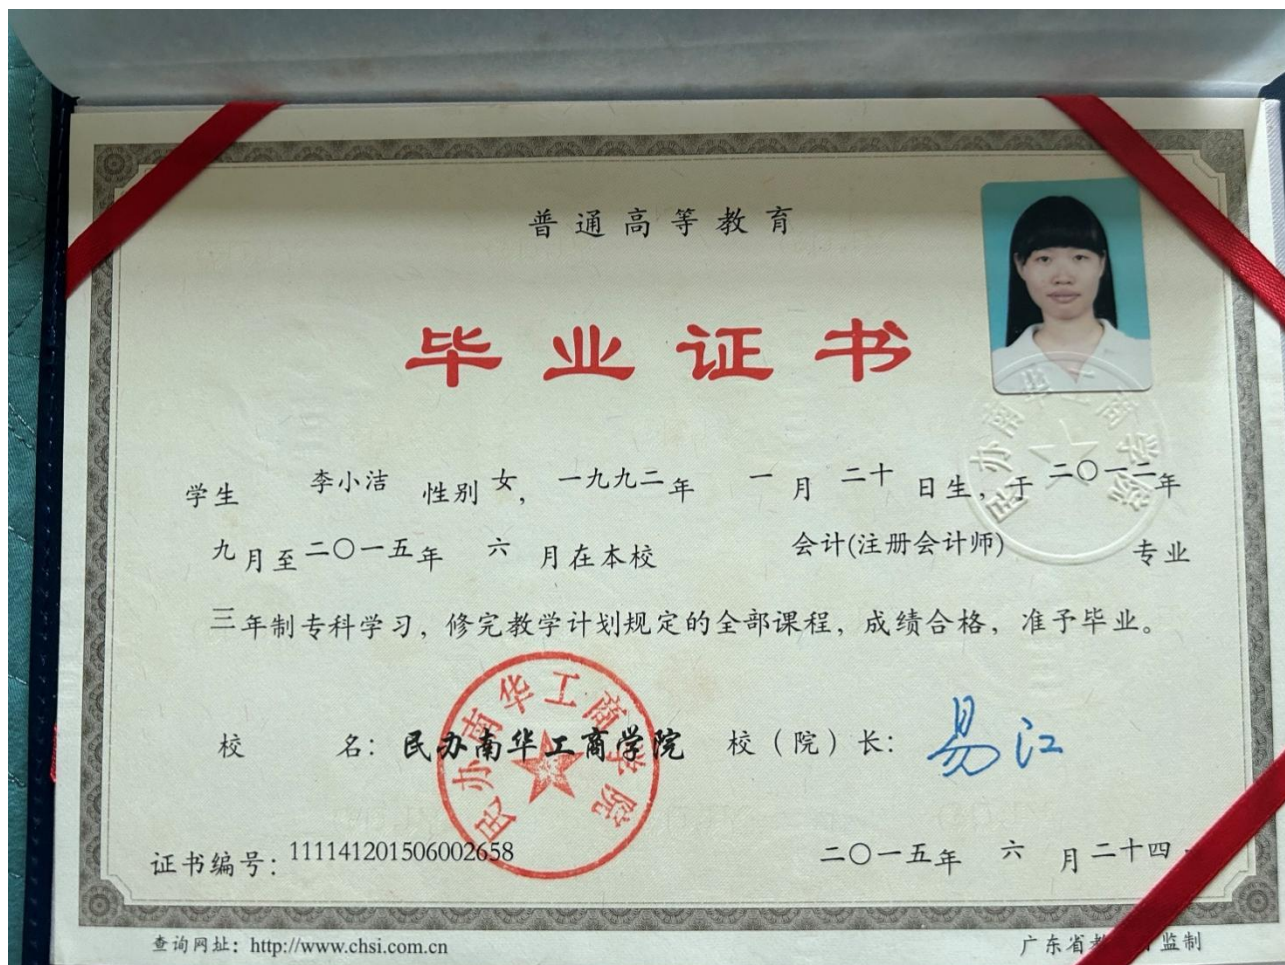 普通高等教育
毕业证书
学生 李小洁 性别 女, 一九九二年 一 月 二十 日生, 于 二〇一二年
九月至二〇一五年 六 月在本校 会计(注册会计师) 专业
三年制专科学习, 修完教学计划规定的全部课程, 成绩合格, 准予毕业。
校 名: 民办南华工商学院 校（院）长: 易江
民办南华工商学院
民办南华工商学院
证书编号: 111141201506002658 二〇一五年 六 月二十四
查询网址: http://www.chsi.com.cn 广东省教 监制